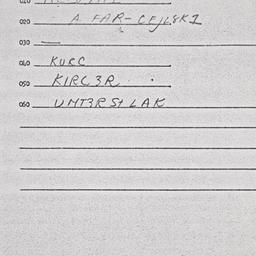 020 A FAR-CFJL8KI
030 —
040 KURC
050 KIRC3R
060 UNT3R St LAK